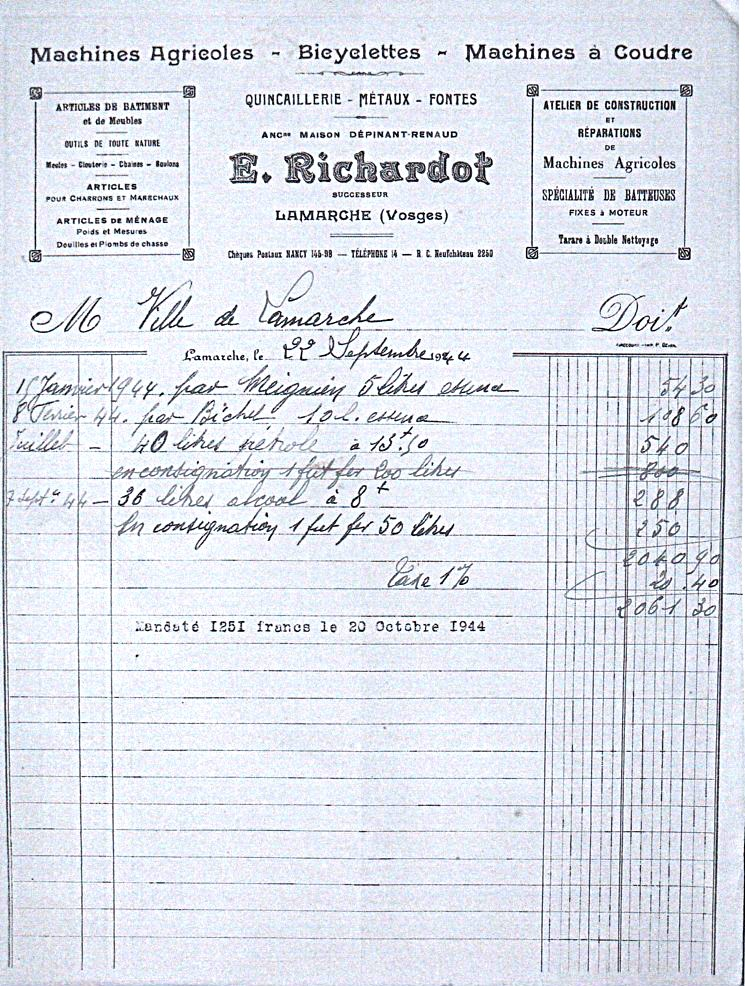 Machines Agricoles - Bicyclettes - Machines à Coudre
ARTICLES DE BATIMENT
et de Meubles
OUTILS DE TOUTE NATURE
Meules - Clouterie - Chaines - Boulons
ARTICLES
POUR CHARRONS ET MARECHAUX
ARTICLES DE MÉNAGE
Poids et Mesures
Douilles et Plombs de chasse
QUINCAILLERIE - MÉTAUX - FONTES
ANCne MAISON DÉPINANT-RENAUD
E. Richardot
SUCCESSEUR
LAMARCHE (Vosges)
Chèques Postaux NANCY 145-98 — TÉLÉPHONE 14 — R. C. Neufchâteau 2250
ATELIER DE CONSTRUCTION
ET
RÉPARATIONS
DE
Machines Agricoles
SPÉCIALITÉ DE BATTEUSES
FIXES à MOTEUR
Tarare à Double Nettoyage
M Ville de Lamarche Doit
Lamarche, le 22 Septembre 1944
15 Janvier 1944. par Meignien 5 litres essence 54 30
8 Février 44. par Bichet 10 l. essence 108 60
Juillet - 40 litres pétrole à 13f50 540
en consignation 1 fut fer 200 litres 800
7 Septe 44 - 36 litres alcool à 8f 288
En consignation 1 fut fer 50 litres 250
2040 90
Taxe 1% 20.40
2061 30
Mandaté 1251 francs le 20 Octobre 1944